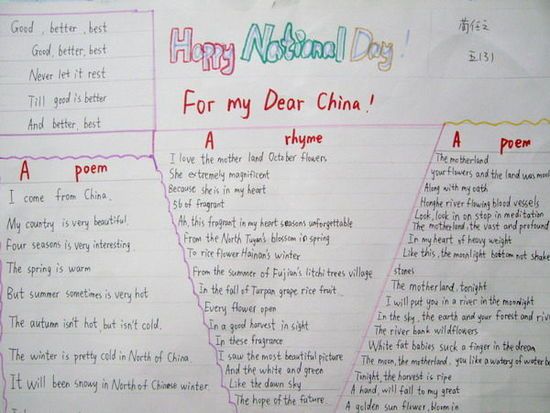 Good, better, best
Good, better, best
Never let it rest
Till good is better
And better, best
Happy National Day!
For my Dear China!
五(3)
A poem
I come from China.
My country is very beautiful.
Four seasons is very interesting
The spring is warm
But summer sometimes is very hot
The autumn isn't hot, but isn't cold.
The winter is pretty cold in North of China.
It will been snowy in North of Chinese winter.
A rhyme
I love the mother land October flowers
She extremely magnificent
Because she is in my heart
56 of fragrant
Ah, this fragrant in my heart seasons unforgettable
From the North Tuyan's blossom in spring
To rice flower Hainan's winter
From the summer of Fujian's litchi trees village
In the fall of Turpan grape rice fruit
Every flower open
In a good harvest in sight
In these fragrance
I saw the most beautiful picture
And the white and green
Like the dawn sky
The hope of the future
A poem
The motherland
your flowers and the land was
Along with my oath
Honghe river flowing blood vessels
Look, look in on stop in meditation
The motherland, the vast and profound
In my heart of heavy weight
Like this, the moonlight bottom not shake
stones
The motherland, tonight
I will put you in a river in the moonnight
In the sky, the earth and your forest and
The river bank wildflowers
White fat babies suck a finger in the dream
The moon, the motherland, you like a watery of water
Tonight, the harvest is ripe
A hand, will fall to my great
A golden sun flower, bloom in